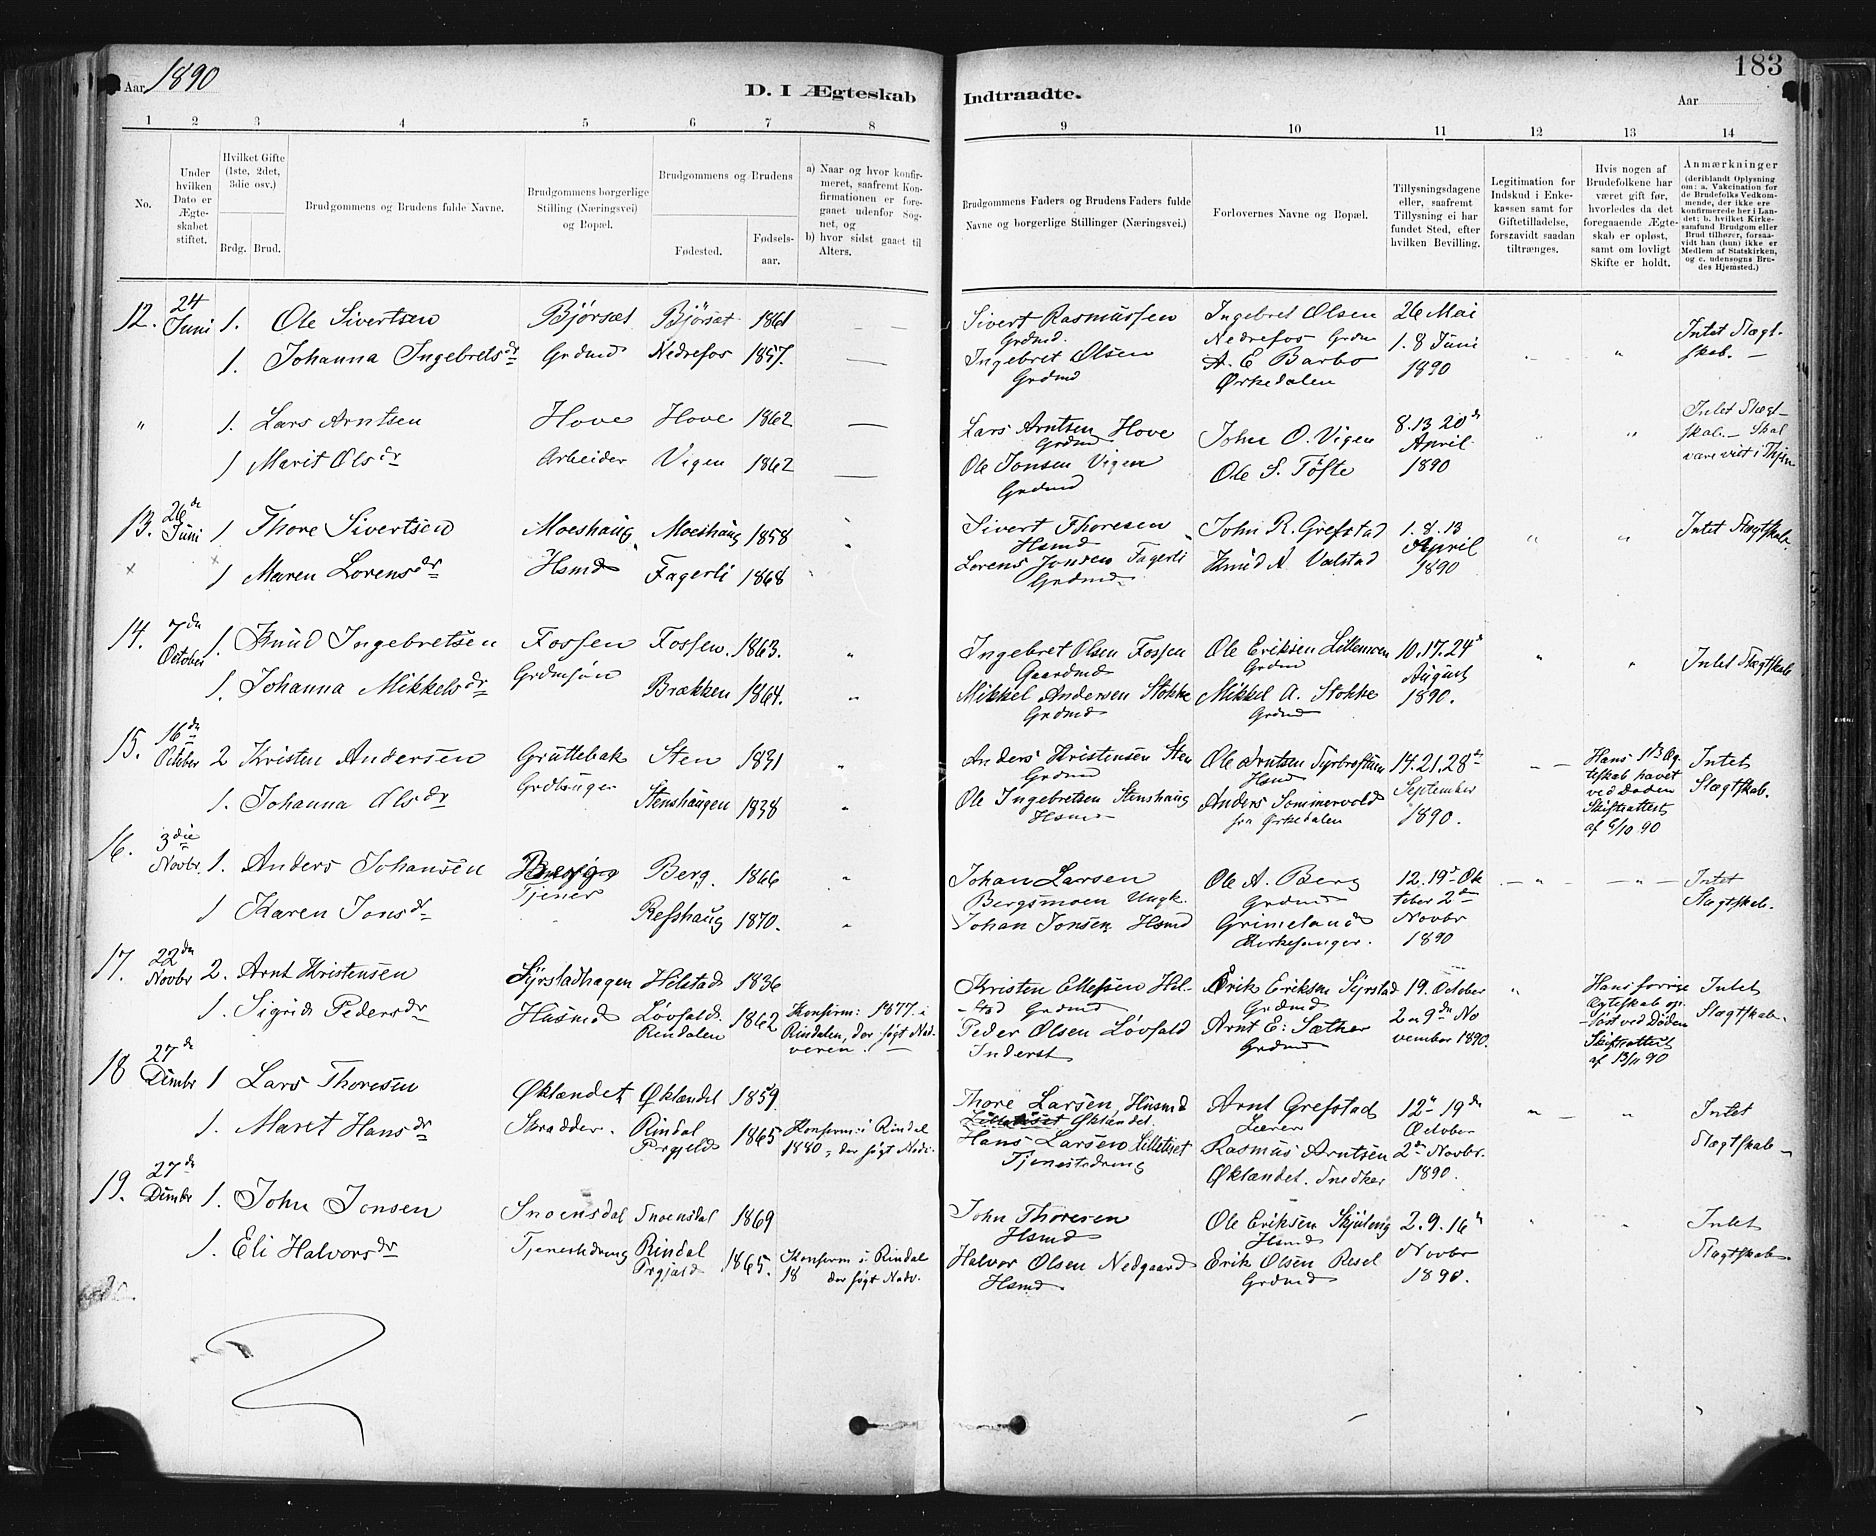 Aar 1890
D. I Ægteskab
Indtraadte.
183
Aar
1 2 3 4 5 6 7 8 9 10 11 12 13 14
No.
Under hvilken Dato er Ægteskabet stiftet.
Hvilket Gifte (1ste, 2det, 3die osv.)
Brdg. Brud.
Brudgommens og Brudens fulde Navne.
Brudgommens borgerlige Stilling (Næringsvei) og Bopæl.
Brudgommens og Brudens
Fødested. Fødsels-aar.
a) Naar og hvor konfirmeret, saafremt Konfirmationen er foregaaet udenfor Sognet, og
b) hvor sidst gaaet til Alters.
Brudgommens Faders og Brudens Faders fulde Navne og borgerlige Stillinger (Næringsvei.)
Forlovernes Navne og Bopæl.
Tillysningsdagene eller, saafremt Tillysning ei har fundet Sted, efter hvilken Bevilling.
Legitimation for Indskud i Enkekassen samt for Giftetilladelse, forsaavidt saadan tiltrænges.
Hvis nogen af Brudefolkene har været gift før, hvorledes da det foregaaende Ægteskab er opløst, samt om lovligt Skifte er holdt.
Anmærkninger (deriblandt Oplysning om: a. Vakcination for de Brudefolks Vedkommende, der ikke ere konfirmerede her i Landet; b. hvilket Kirkesamfund Brudgom eller Brud tilhører, forsaavidt han (hun) ikke er Medlem af Statskirken, og c. udensogns Brudes Hjemsted.)
12. 24 Juni 1. Ole Sivertsen Bjørset Bjørset 1861 — Sivert Rasmussen Grdmd. Ingebret Olsen Nedrefos Grdm 26 Mai Intet Slægt-
1. Johanna Ingebretsdr Grdmd Nedrefos 1857. — Ingebret Olsen Grdmd A. E. Barbo Ørkedalen 1. 8 Juni 1890 " " skab. —
" 1. Lars Arntsen Hove Hove 1862 — Lars Arntsen Hove Grdmd John O. Vigen 8. 13 20de April Intet Slægt-
1 Marit Olsdr Arbeider Vigen 1862 — Ole Jonsen Vigen Grdmd Ole S. Tøfte 1890 " " skab. — Skal være viet i Thjem
13. 26de Juni 1 Thore Sivertsen Moeshaug Moeshaug 1858 " Sivert Thoresen Hsmd John R. Grefstad 1. 8. 13 April Intet Slægtskab.
x x 1 Maren Lorensdr Hsmd Fagerli 1868 " Lorens Jonsen Fagerli Grdmd. Knud A. Valstad 1890 " "
14. 7de October 1. Knud Ingebretsen Fossen Fossen. 1863. " Ingebret Olsen Fossen Gaardmd Ole Eriksen Lillemoen Grdm 10. 17. 24de August " " Intet Slægtskab
1. Johanna Mikkelsdr Grdmsøn Brækken 1864. " Mikkel Andersen Stokke Grdmd Mikkel A. Stokke Grdmd 1890.
15. 16de October 2 Kristen Andersen Gruttebak Sten 1831 " Anders Kristensen Sten Grdmd Ole Arntsen Hsmd 14. 21. 28de September — " — Hans 1ste Ægteskab hævet ved Døden Skifteattest af 6/10 90 Intet Slægtskab.
1. Johanna Olsdr Grdbruger Stenshaugen 1838 " Ole Ingebretsen Stenshaug Hsmd Anders Sommervold fra Ørkedalen 1890.
16. 3die Novbr. 1. Anders Johansen Berg. 1866 " Johan Larsen Bergsmoen Ungk. Ole A. Berg Grdmd 12. 19de Oktober 2de — " — — " — Intet Slægtskab.
1 Karen Jonsdr Tjener Refshaug 1870. " Johan Jonsen Hsmd Grimeland Kirkesanger. Novbr 1890
17. 22de Novbr 2. Arnt Kristensen Syrstadhagen Helstad 1836 Kristen Ellefsen Helstad Grdmd Erik Eriksen Syrstad Grdmd 19. October " Hans forrige Ægteskab opløst ved Døden Skifteattest af 13/11 90 Intet Slægtskab.
1. Sigrid Pedersdr Husmd Løvfald Rindalen 1862 Konfirm: 1877. i Rindalen, der søgt Nadveren. — Peder Olsen Løvfald Inderst Arnt E. Sæther Grdmd 2 og 9de November 1890.
18 27de Dcmbr 1 Lars Thoresen Øklandet Øklandet 1859 Thore Larsen, Husmd Øklandet. Arnt Grefstad Lærer 12te 19de October " — " Intet
1. Maret Hansdr Skrædder. Rindal Trgjeld 1865 Konfirm: i Rindal 1880, der søgt Nadv. Hans Larsen Lilleteset Tjenestedreng Rasmus Arntsen Øklandet. Snedker 2de Novbr. 1890. Slægtskab —
19. 27de Dcmbr 1. John Jonsen Snoensdal Snoensdal 1869 John Thoresen Hsmd Ole Eriksen Hsmd 2. 9. 16de " " Intet
1. Eli Halvorsdr Tjenestedreng Rindal Prgjæld 1865. Konfirm i Rindal 18 der søgt Nadv. Halvor Olsen Nedgaard Hsmd. Erik Olsen Resel Grdmd Novbr 1890. Slægtskab